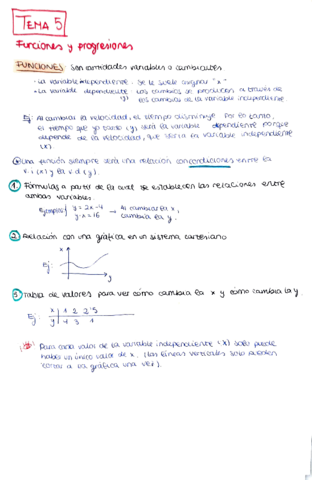 TEMA 5
Funciones y progresiones
FUNCIONES: Son cantidades variables o cambiantes
- La variable independiente. Se le suele asignar "x"
- La variable dependiente. Los cambios se producen a través de
(y) los cambios de la variable independiente.
Ej: Al cambiar la velocidad, el tiempo disminuye. Por lo tanto,
el tiempo que yo tardo (y) será la variable dependiente porque
depende de la velocidad, que sería la variable independiente
(x).
Una función siempre será una relación con condiciones entre la
v.i (x) y la v.d (y).
1. Fórmulas a partir de la cual se establecen las relaciones entre
ambas variables.
Ejemplo y = 2x - 4 → Al cambiar la x,
y·x = 16 cambia la y.
2. Relación con una gráfica en un sistema cartesiano
x
Ej:
y
3. Tabla de valores para ver cómo cambia la x y cómo cambia la y
Ej: x 1 2 2'5
y 4 3 1
Para cada valor de la variable independiente (x) solo puede
haber un único valor de x. (Las líneas verticales solo pueden
cortar a la gráfica una vez).